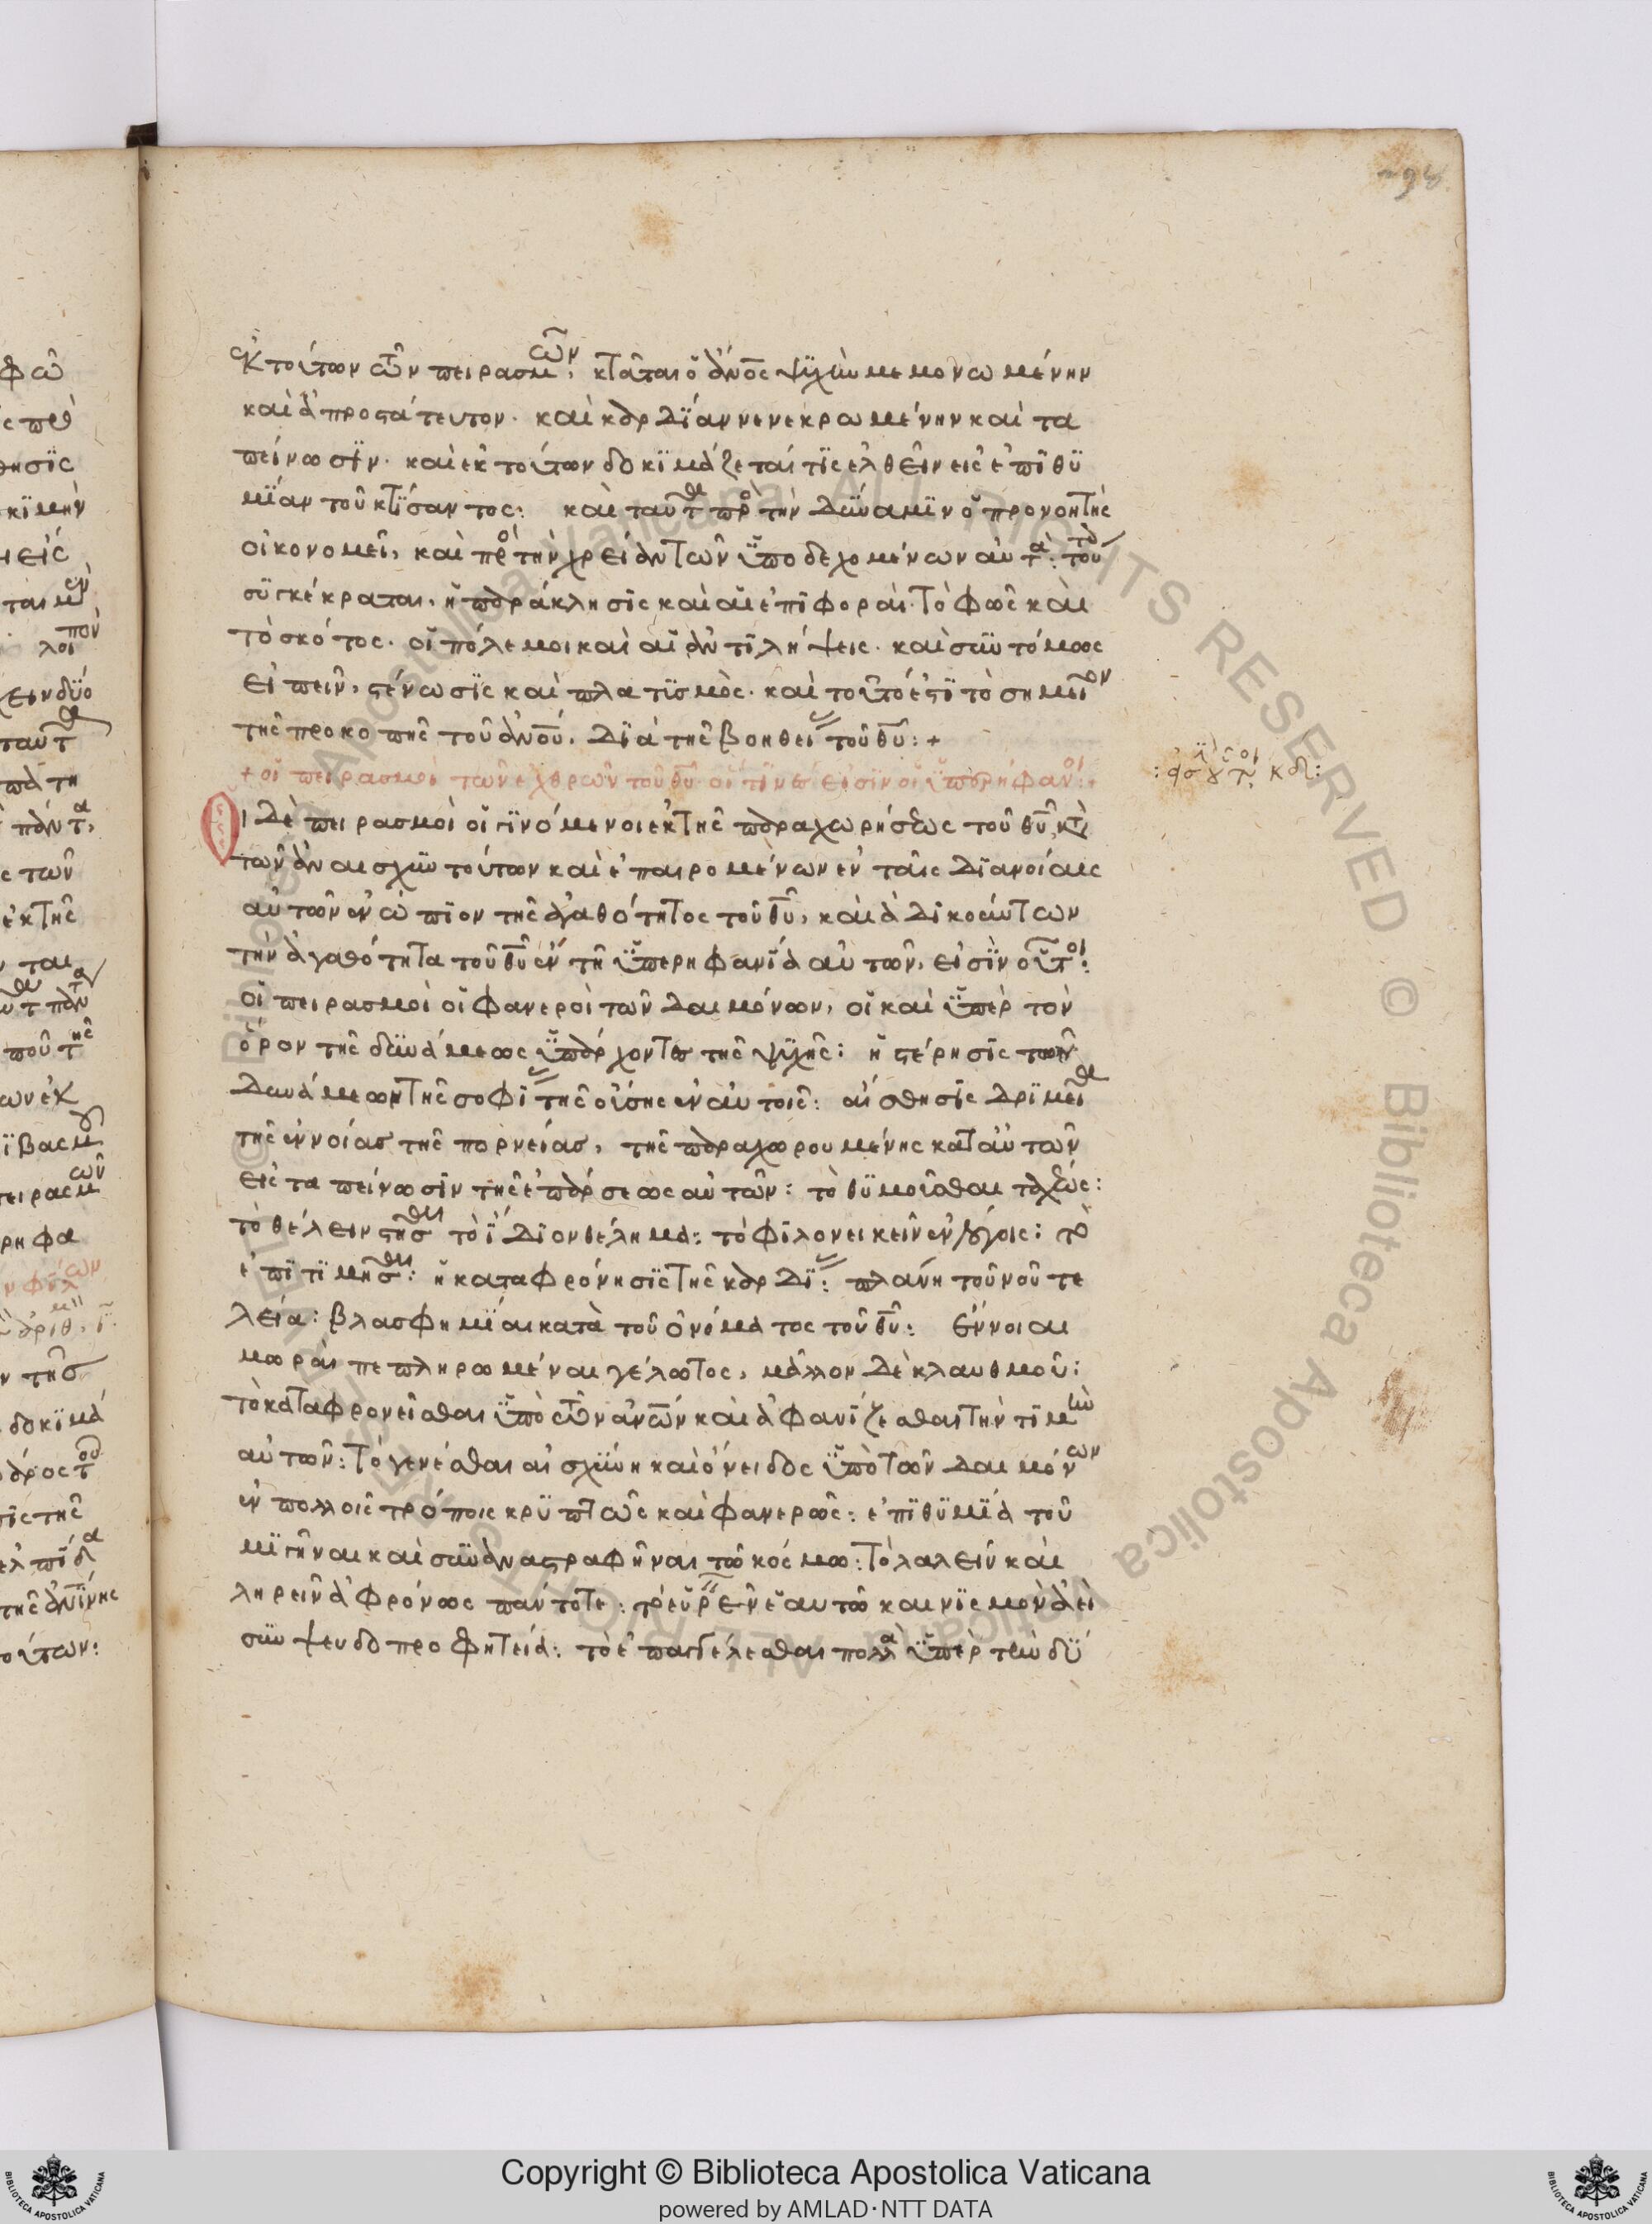 ἐκ τούτων τῶν πειρασμῶν, κτᾶται ὁ ἀνος ψϋχὴν μεμονωμένην
καὶ ἀπροστάτευτον. καὶ καρδΐαν νενεκρωμένην καὶ τα
πείνωσϊν. καὶ ἐκ τούτων δοκϊμάζεται τίς ἐλθεῖν εἰς ἐπϊθϋ
μΐαν τοῦ κτΐσαντος: καὶ ταῦτα δὲ πρὸς τὴν δύναμϊν ὁ προνοητὴς
οἰκονομεῖ, καὶ πρὸς τὴν χρείαν τῶν ὑποδεχομένων αὐτά:
σϋγκέκραται, ἡ παράκλησϊς καὶ αἱ ἐπϊφοραί. τὸ φῶς καὶ
τὸ σκότος. οἱ πόλεμοι καὶ αἱ ἀντϊλήψεις. καὶ συντόμως
εἰπεῖν, στένωσϊς καὶ πλατϊσμὸς. καὶ τοῦτό ἐστϊ τὸ σημεῖον
τῆς προκοπῆς τοῦ ἀνου, δϊὰ τῆς βοηθείας τοῦ θυ: +
+ οἱ πειρασμοὶ τῶν ἐχθρῶν τοῦ θυ οἵτϊνές εἰσϊν οἱ ὑπερήφανοι: +
Οἱ δὲ πειρασμοὶ οἱ γϊνόμενοι ἐκ τῆς παραχωρήσεως τοῦ θυ κατὰ
τῶν ἀναισχύντούτων καὶ ἐπαιρομένων ἐν ταῖς δϊανοίαις
αὐτῶν ἐνώπϊον τῆς ἀγαθότητος τοῦ θυ, καὶ ἀδϊκούντων
τὴν ἀγαθότητα τοῦ θυ ἐν τῇ ὑπερηφανΐα αὐτῶν, εἰσϊν οὗτοι:
οἱ πειρασμοὶ οἱ φανεροὶ τῶν δαιμόνων, οἱ καὶ ὑπὲρ τὸν
ὅρον τῆς δυνάμεως ὑπάρχοντες τῆς ψϋχῆς: ἡ στέρησϊς τῶν
δυνάμεων τῆς σοφΐας τῆς οὔσης ἐν αὐτοῖς: αἴσθησϊς δρϊμεῖα
τῆς ἐννοίας τῆς πορνείας, τῆς παραχωρουμένης κατ αὐτῶν
εἰς ταπείνωσϊν τῆς ἐπάρσεως αὐτῶν: τὸ θϋμοῦσθαι ταχέως:
τὸ θέλειν στῆσαι τὸ ἴδϊον θέλημα: τὸ φϊλονεικεῖν ἐν λόγοις: τὸ
ἐπϊτϊμῆσαι: ἡ καταφρόνησϊς τῆς καρδΐας: πλάνη τοῦ νοῦ τε
λεία: βλασφημΐαι κατὰ τοῦ ὀνόματος τοῦ θυ: ἔννοιαι
μωραὶ πεπληρωμέναι γέλωτος, μᾶλλον δὲ κλαυθμοῦ:
τὸ καταφρονεῖσθαι ὑπὸ τῶν ανων καὶ ἀφανΐζεσθαι τὴν τϊμὴν
αὐτῶν: τὸ γενέσθαι αἰσχύνη καὶ ὄνειδος ὑπὸ τῶν δαιμόνων
ἐν πολλοῖς τρόποις κρϋπτῶς καὶ φανερῶς: ἐπϊθϋμΐα τοῦ
μϊγῆναι καὶ συναναστραφῆναι τῶ κόσμω: τὸ λαλεῖν καὶ
ληρεῖν ἀφρόνως πάντοτε: τὸ εὑρεῖν ἑαυτῶ καινϊσμὸν ἀεὶ
σὺν ψευδοπροφητεία: τὸ ἐπαγγέλεσθαι πολλὰ ὑπὲρ τὴν δύ